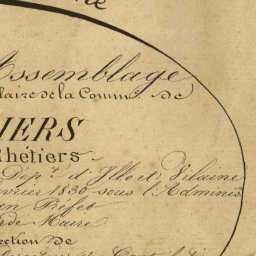 Assemblage
laire de la Comm. de
IERS
hétiers
Dép.t d'Ille et Vilaine
vrier 1836 sous l'Adminis
en Préfet
r de Maire
ection de